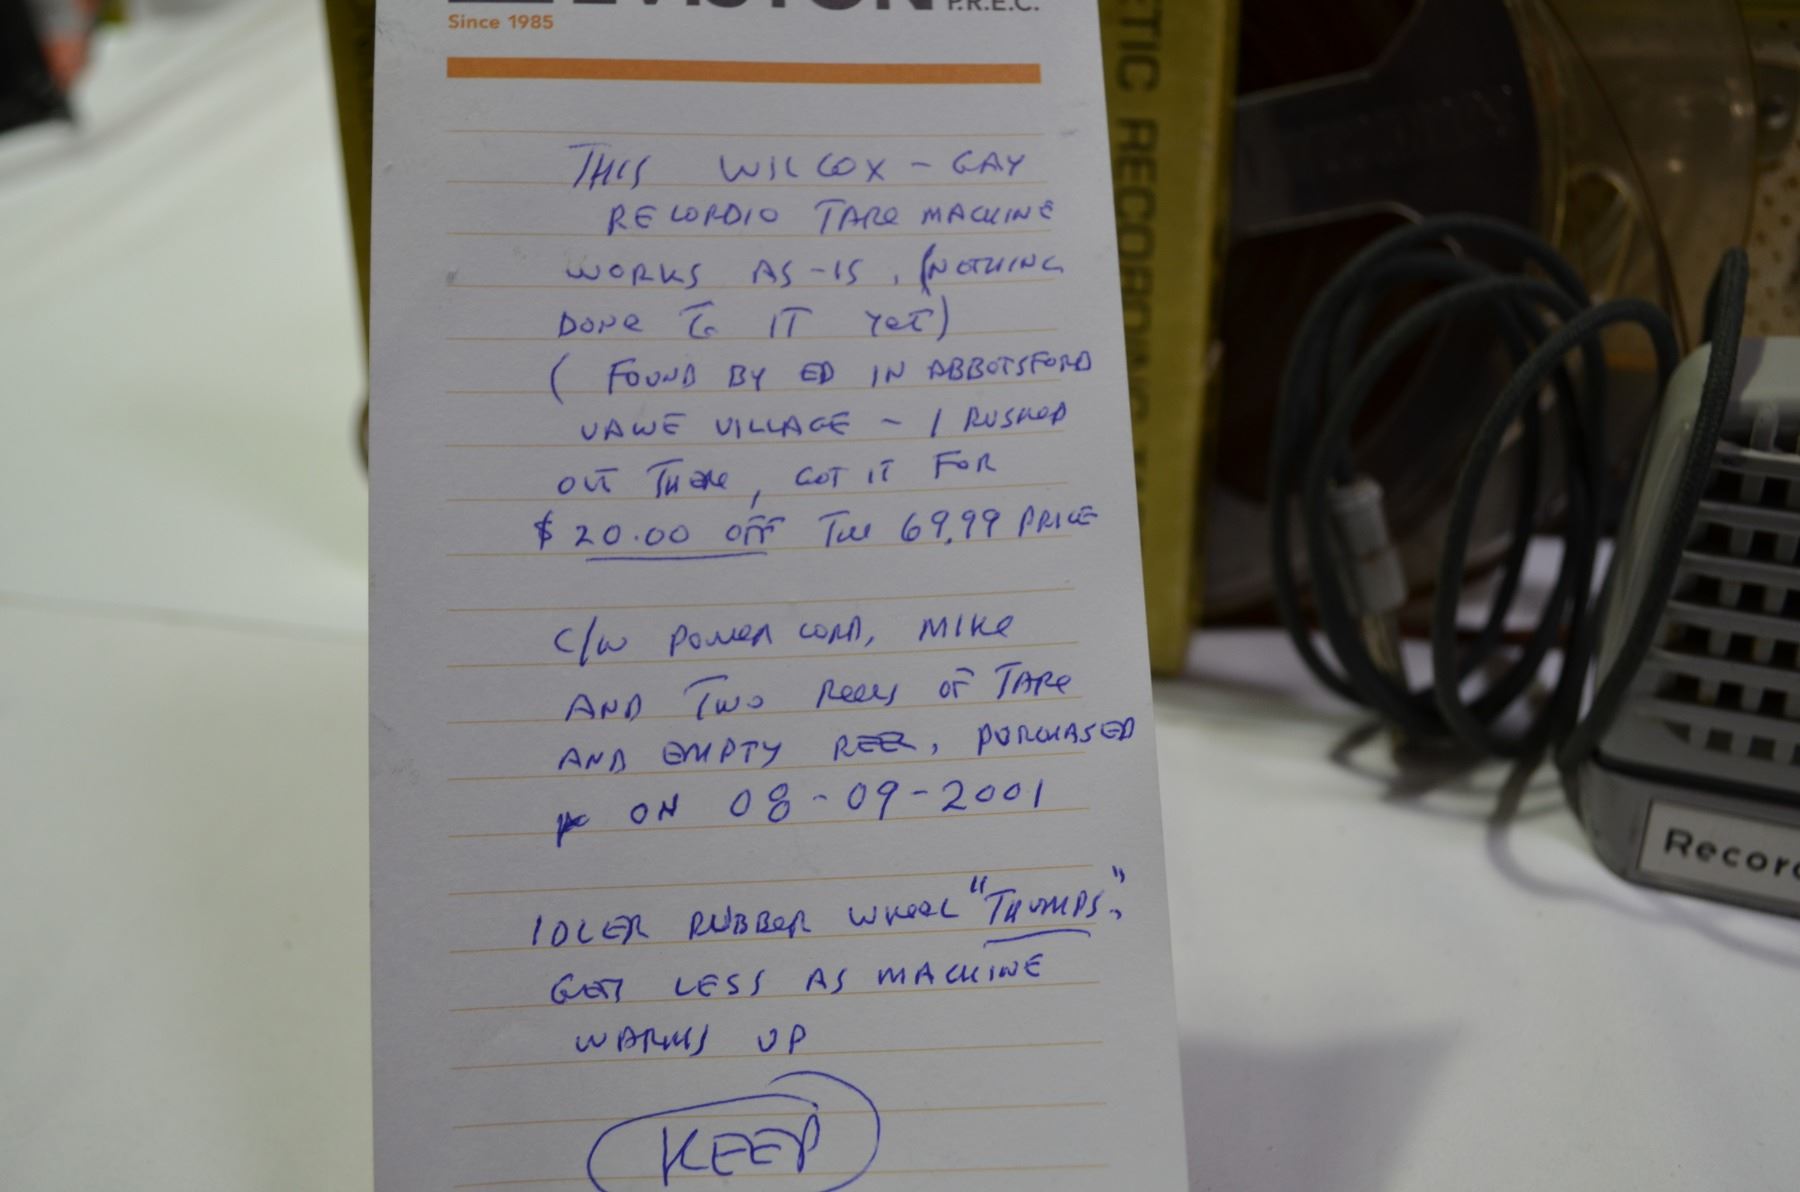 P.R.E.C.
Since 1985
THIS WILCOX - GAY
RECORDIO TAPE MACHINE
WORKS AS-IS, (NOTHING
DONE TO IT YET)
( FOUND BY ED IN ABBOTSFORD
VALUE VILLAGE - I RUSHED
OUT THERE, GOT IT FOR
$20.00 OFF THE 69.99 PRICE
C/W POWER CORD, MIKE
AND TWO REELS OF TAPE
AND EMPTY REEL, PURCHASED
ON 08-09-2001
IDLER RUBBER WHEEL "THUMPS",
GETS LESS AS MACHINE
WARMS UP
KEEP
ETIC RECORDING
Recor